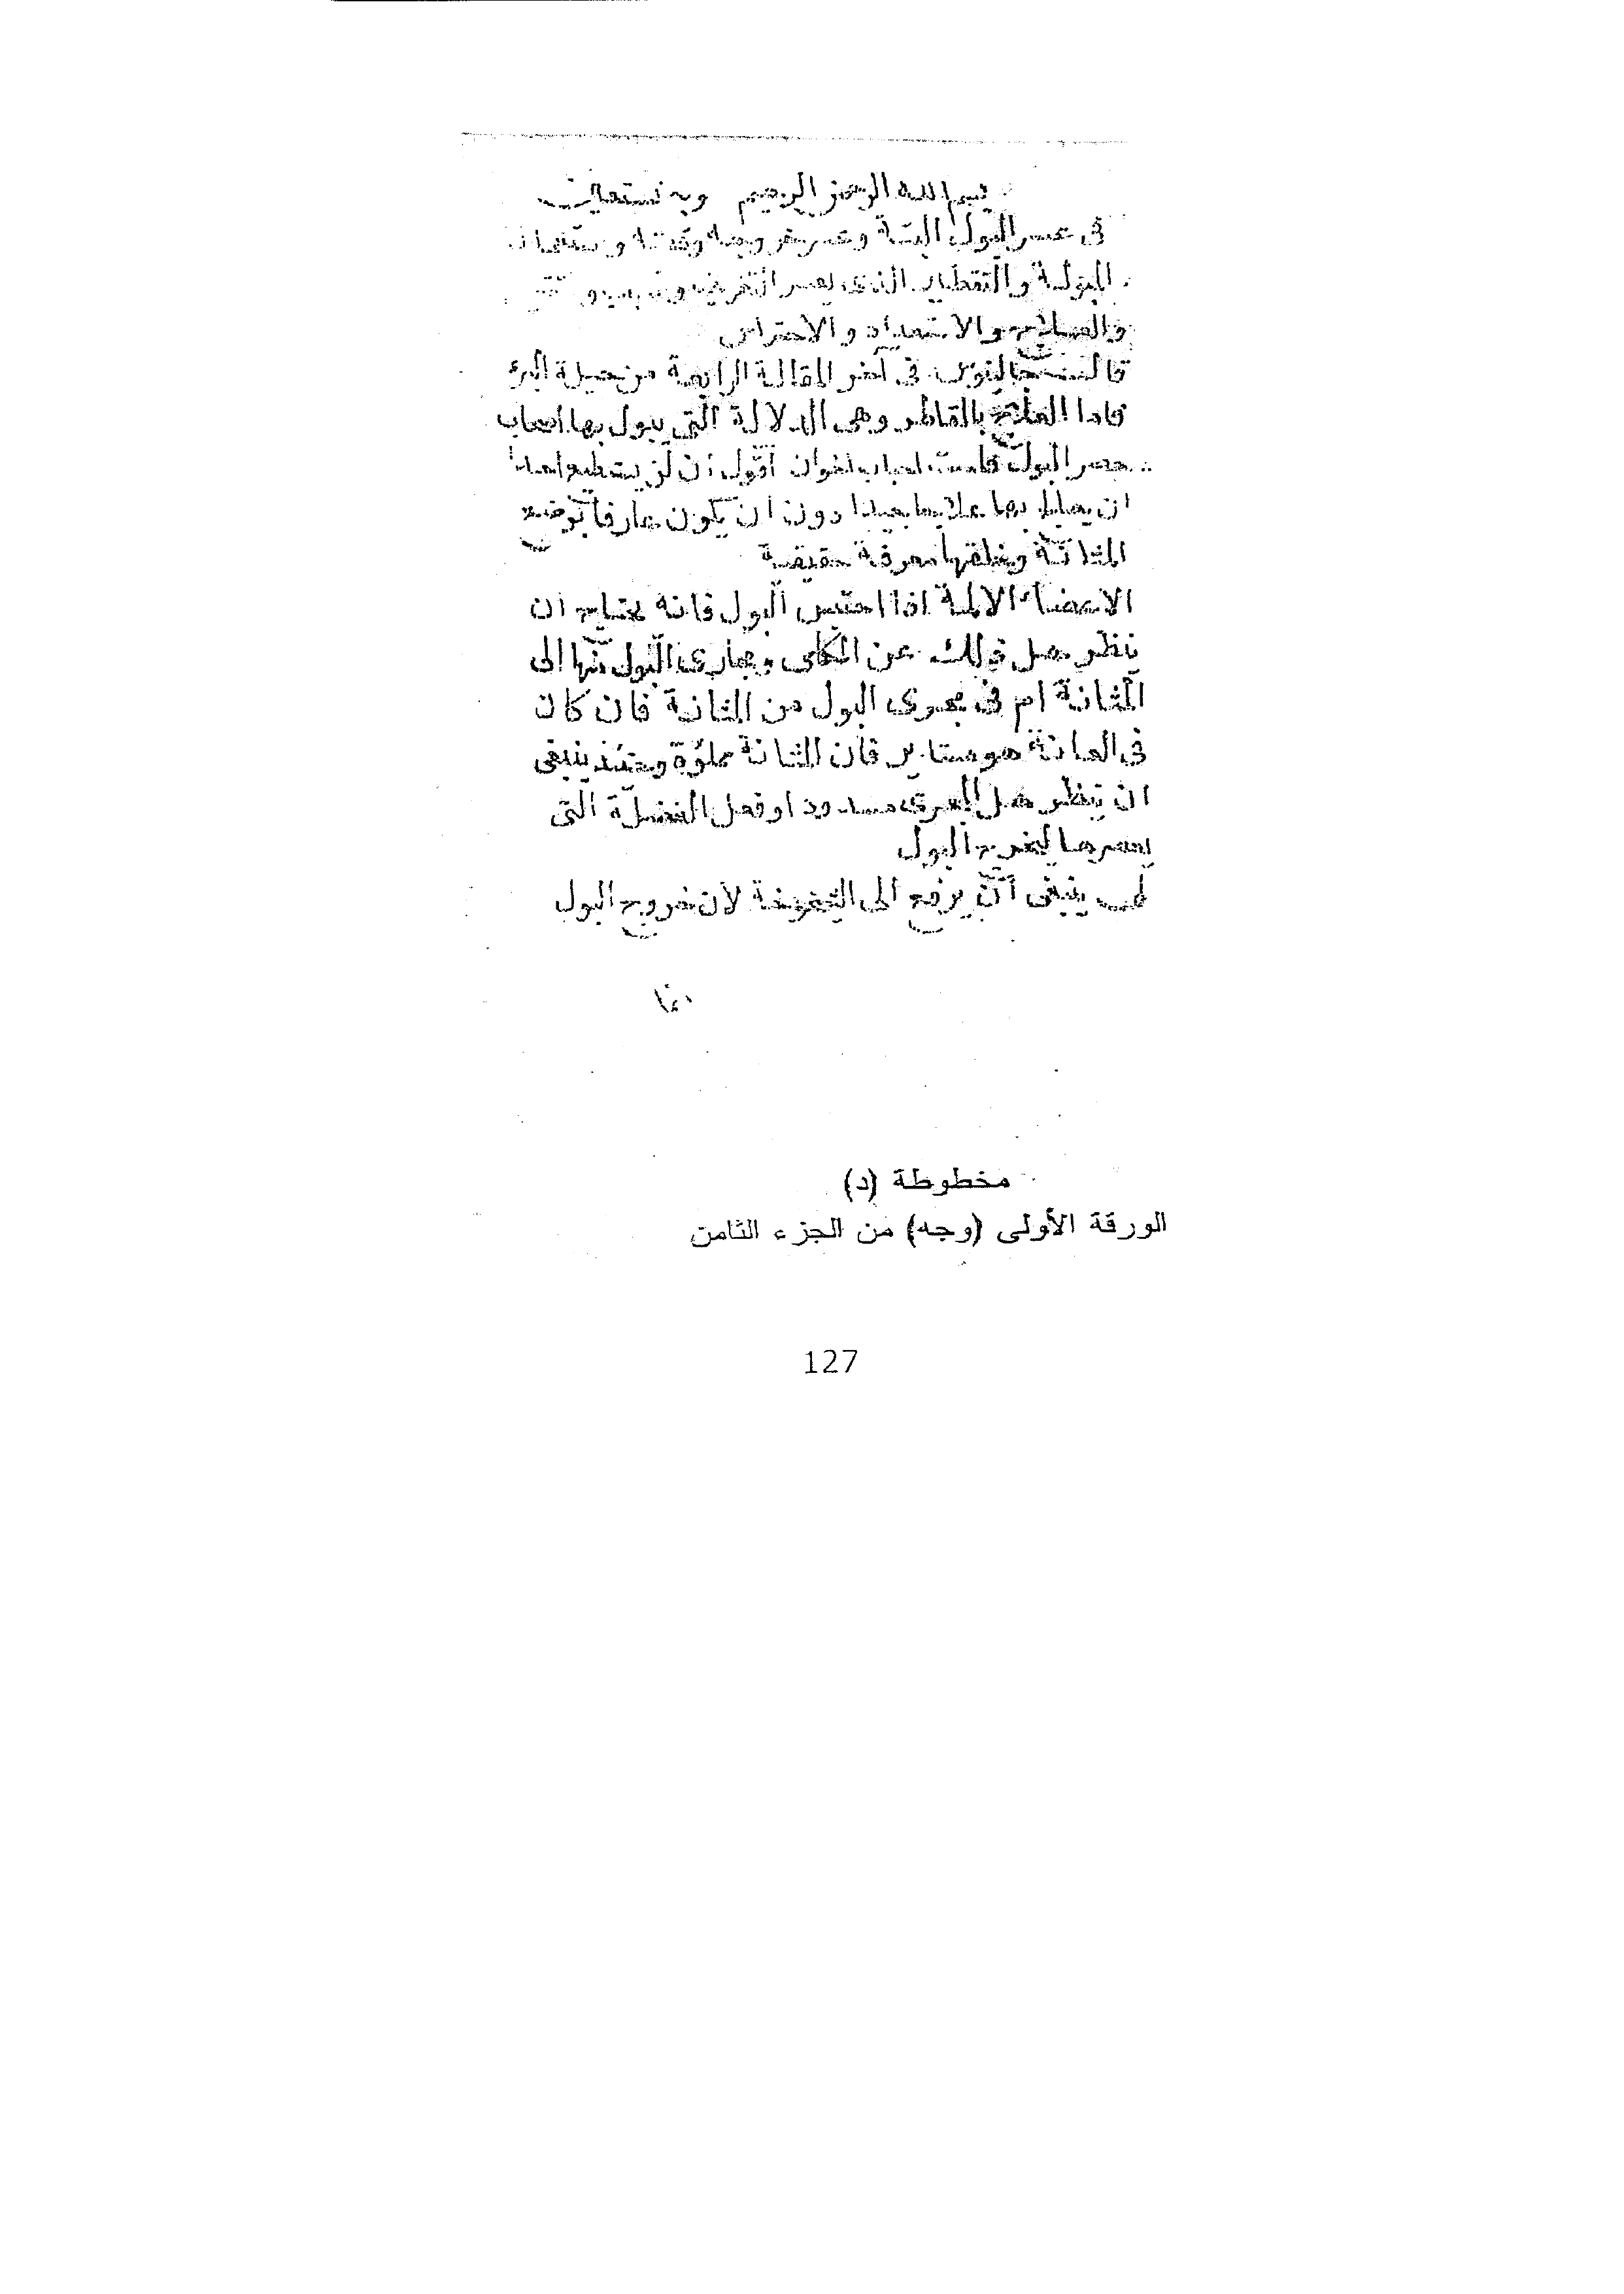 بسم الله الرحمن الرحيم وبه نستعين
فى عسر البول البتة وعسر خروجه
المبولة والتقطير الذى يعسر
والعلاج والاستعداد والاحتراس
قال جالينوس فى آخر المقالة الرابعة من حيلة البرء
فاما العلاج بالقاطر وهى الدلالة التى يبول بها اصحاب
حصر البول اقول ان لن يستطيع احدا
ان بها علاجا جيدا دون ان يكون عارفا بوضع
المثانة وخلقها معرفة حقيقية
الاعضاء الالمة اذا احتبس البول فانه يحتاج ان
ينظر هل ذلك عن الكلى ومجارى البول منها الى
المثانة ام فى مجرى البول من المثانة فان كان
فى العانة فان المثانة مملؤة وحينئذ ينبغى
ان ينظر هل المجرى مسدود او فعل العضلة التى
يعصرها ليخرج البول
لى ينبغى ان يرجع الى لان خروج البول
مخطوطة (د)
الورقة الأولى (وجه) من الجزء الثامن
127